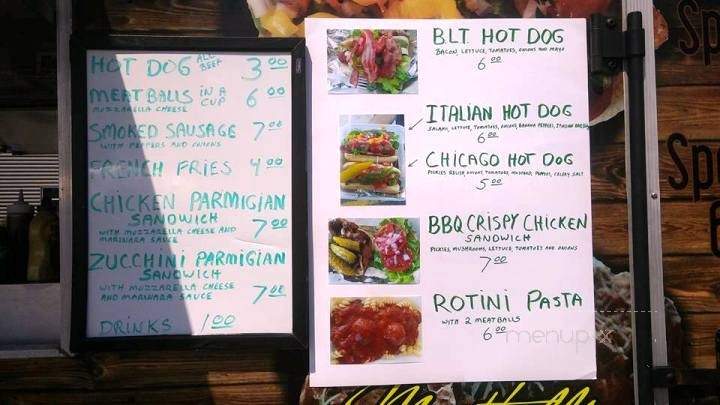 HOT DOG ALL BEEF 3 00
MEATBALLS IN A CUP 6 00
MUZZARELLA CHEESE
SMOKED SAUSAGE 7 00
WITH PEPPERS AND ONIONS
FRENCH FRIES 4 00
CHICKEN PARMIGIAN
SANDWICH
WITH MUZZARELLA CHEESE AND
MARINARA SAUCE 7 00
ZUCCHINI PARMIGIAN
SANDWICH
WITH MUZZARELLA CHEESE
AND MARINARA SAUCE 7 00
DRINKS 1 00
B.L.T. HOT DOG
BACON, LETTUCE, TOMATOES, ONIONS AND MAYO
6 00
ITALIAN HOT DOG
SALAMI, LETTUCE, TOMATOES, ONIONS, BANANA PEPPERS, ITALIAN DRESSING
6 00
CHICAGO HOT DOG
PICKLES RELISH, ONIONS, TOMATOES, MUSTARD, PEPPERS, CELERY SALT
5 00
BBQ CRISPY CHICKEN
SANDWICH
PICKLES, MUSHROOMS, LETTUCE, TOMATOES AND ONIONS
7 00
ROTINI PASTA
WITH 2 MEATBALLS
6 00
menupix
Sp
Spe